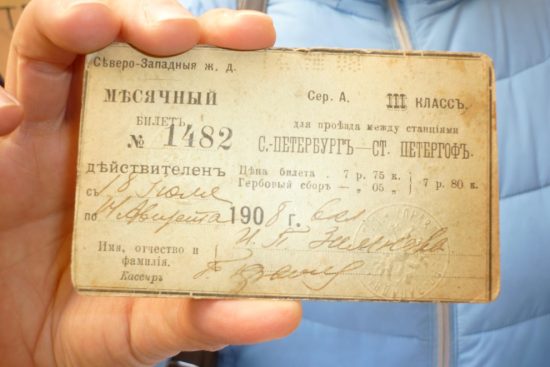 Сѣверо-Западныя ж. д.
МѢСЯЧНЫЙ Сер. А. III КЛАССЪ.
БИЛЕТЪ для проѣзда между станціями
№ 1482 С.-ПЕТЕРБУРГЪ — СТ. ПЕТЕРГОФЪ.
ДѢЙСТВИТЕЛЕН Цѣна билета . 7 р. 75 к.
Гербовый сборъ — „ 05 „ 7 р. 80 к.
съ 8 Іюля
по Августа 1908 г.
И. П.
Имя, отчество и
фамилія.
Кассиръ